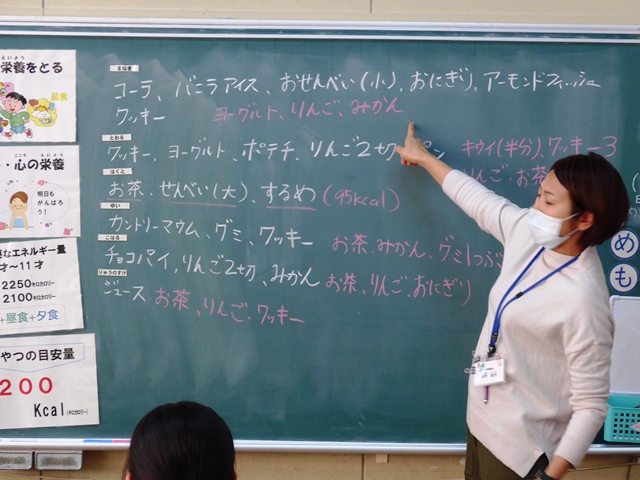 えいよう
栄養をとる
昼食
こころ　えいよう
・心の栄養
明日も
がんばろ
う！
なエネルギー量
才～11才
2250キロカロリー
2100キロカロリー
+昼食+夕食
やつの目安量
200
Kcal(キロカロリー)
コーラ、バニラアイス、おせんべい(小)、おにぎり、アーモンドフィッシュ
クッキー　ヨーグルト、りんご、みかん
とおる
クッキー、ヨーグルト、ポテチ、りんご2切、パン　キウイ(半分)、クッキー3
りんご、お茶
はくと
お茶、せんべい(大)、するめ(95kcal)
ゆい
カントリーマウム、グミ、クッキー　お茶、みかん、グミ1つぶ
こはる
チョコパイ、りんご2切、みかん　お茶、りんご、おにぎり
りゅうのすけ
ジュース　お茶、りんご、クッキー
め
も